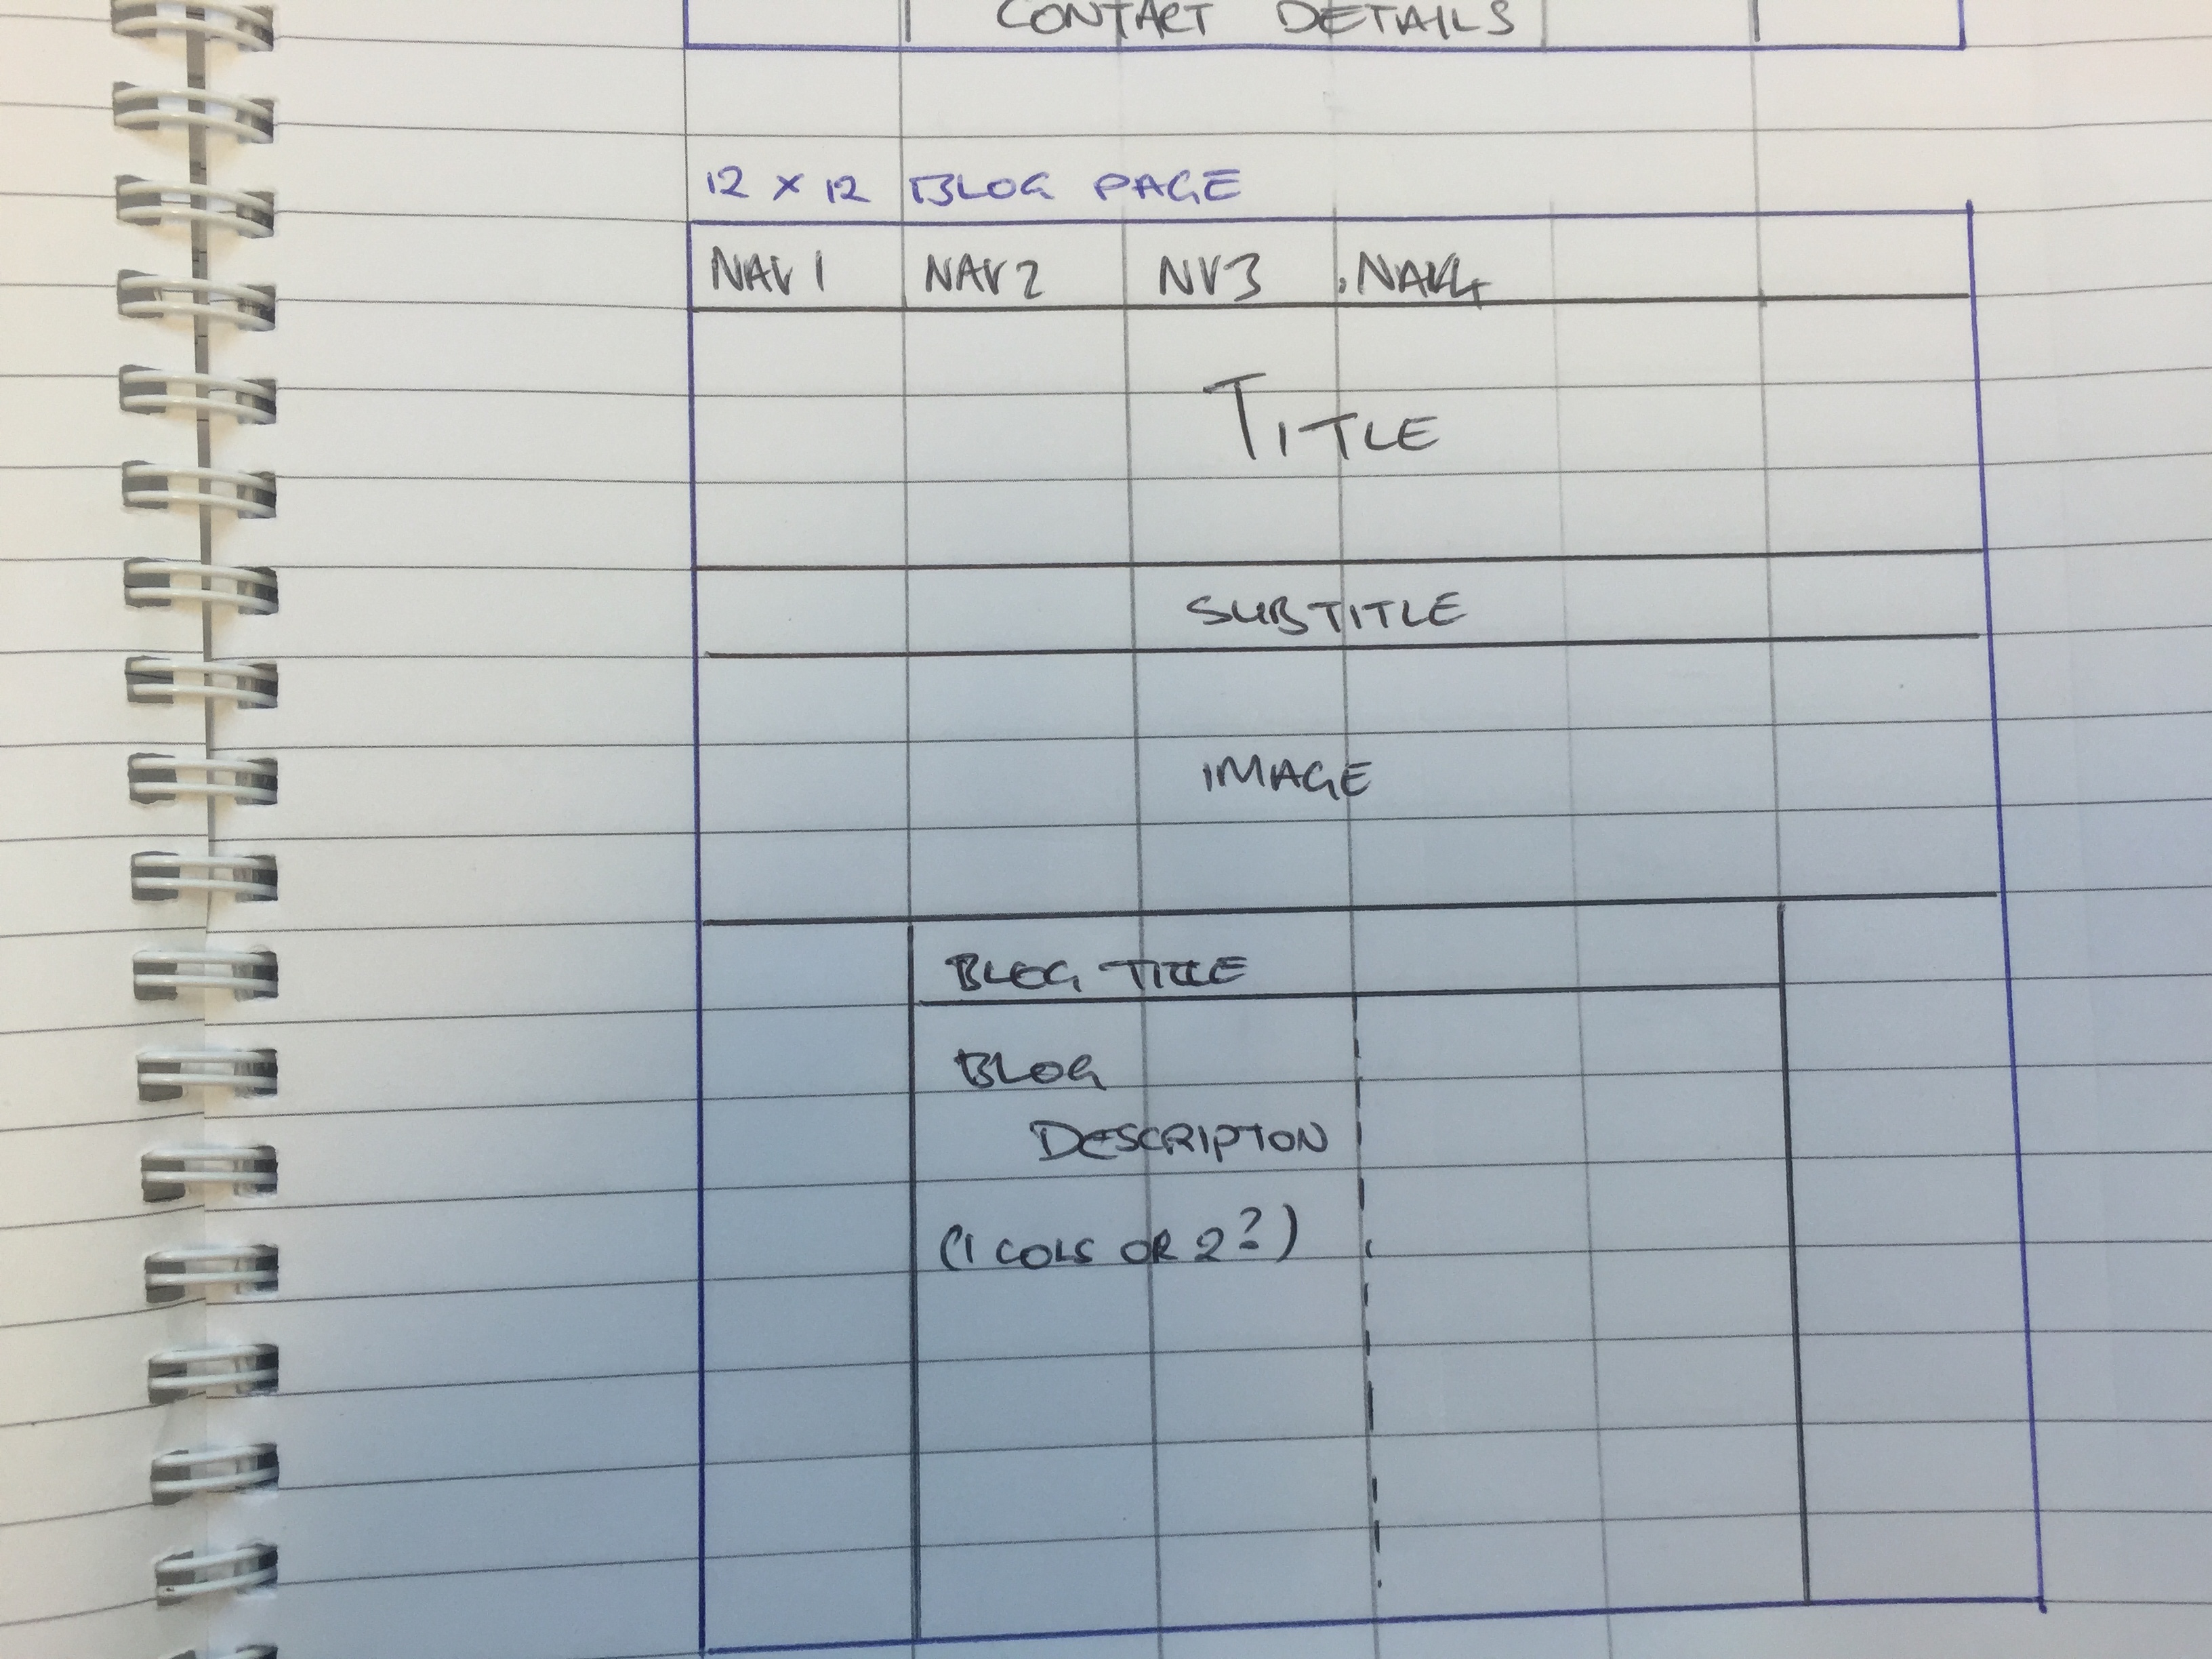 CONTACT DETAILS
12 x 12 BLOG PAGE
NAV 1 NAV 2 NV3 NAV4
TITLE
SUBTITLE
IMAGE
BLOG TITLE
BLOG
DESCRIPTON
(1 COLS OR 2?)